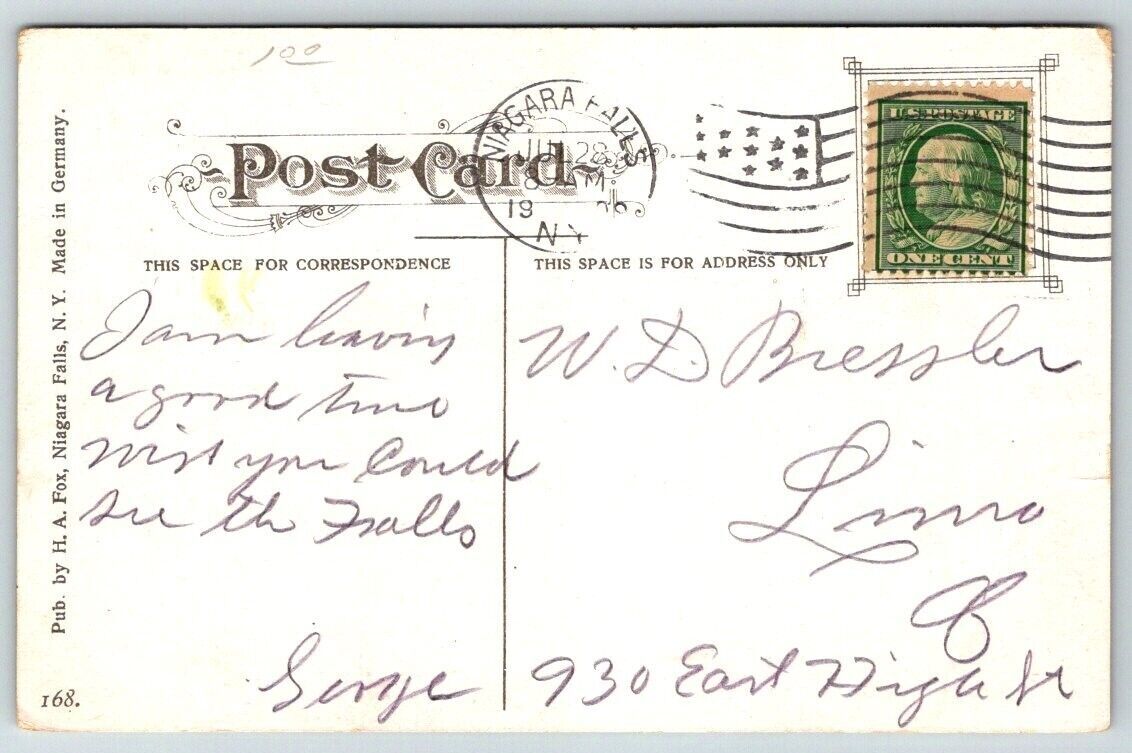 100
Post Card
NIAGARA FALLS
28
19
N.Y.
U.S. POSTAGE
ONE CENT
THIS SPACE FOR CORRESPONDENCE
THIS SPACE IS FOR ADDRESS ONLY
I am having
a good time
wish you could
see the Falls
George
W. D. Bressler
Lima
O
930 East High St
Pub. by H. A. Fox, Niagara Falls, N. Y. Made in Germany.
168.